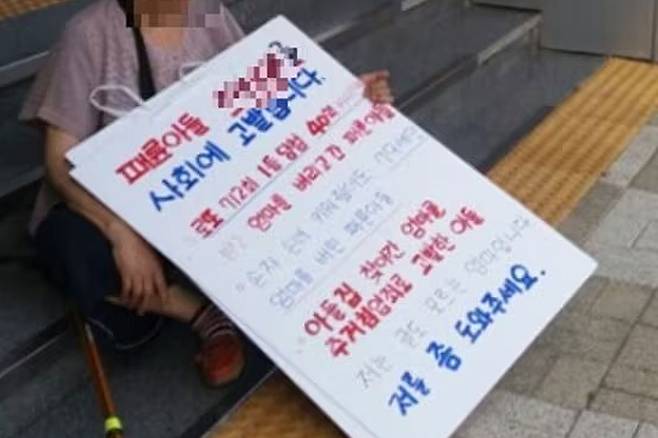 패륜아들
사회에 고발합니다.
로또 712회 1등 당첨 40억
엄마를 버리고 간 패륜아들
손자 손녀 키워줬어도
엄마를 버린 패륜아들
아들집 찾아간 엄마를
주거침입죄로 고발한 아들
저는 글도 모르는 엄마입니다
저를 좀 도와주세요.